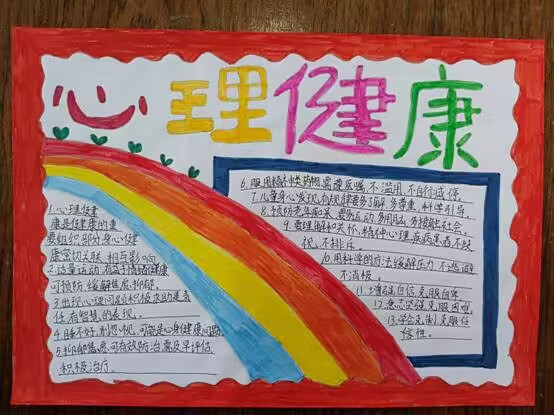 心理健康
1.心理健
康是健康的重
要组成部分身心健
康密切关联、相互影响
2.适量运动、有益于情绪健康
可预防、缓解焦虑、抑郁。
3.出现心理问题积极求助是责
任、有智慧的表现。
4.睡不好、别忽视、可能是心身健康问题
5.抑郁焦虑可有效防治需及早评估
积极治疗
6.服用精神类药物需遵医嘱、不滥用、不自行减停
7.儿童身心发现有规律要多了解多尊重科学引导。
8.预防老年痴呆、要多运动多用脑、多接触社会。
9.要理解和关怀、精神心理疾病患者不歧
视、不排斥
10.用科学的方法缓解压力不逃避
不消极。
11.增强自信克服自卑
12.意志坚强克服困难
13.学会克制克服任
性。